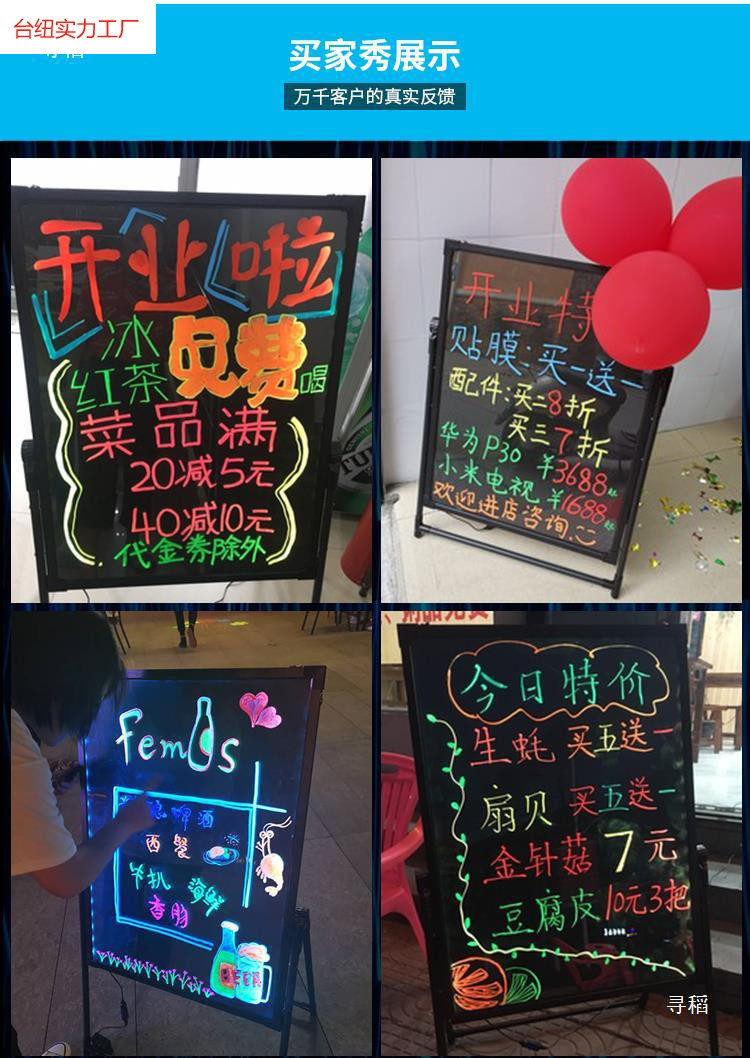 台纽实力工厂
寻稻
买家秀展示
万千客户的真实反馈
开业啦
冰
红茶免费喝
菜品满
20减5元
40减10元
代金券除外
开业特
贴膜:买一送一
配件:买二8折
买三7折
华为P30 ¥3688
小米电视 ¥1688
欢迎进店咨询
Femos
啤酒
西餐
牛扒 海鲜
香肠
今日特价
生蚝 买五送一
扇贝 买五送一
金针菇 7元
豆腐皮 10元3把
寻稻